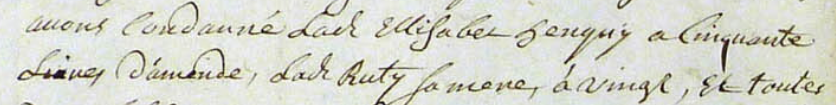 avons Condanné Lade Ellisabet henguy a Cinquante
Livres d'amende, Lade Ruty samere, à vingt, Et toutes